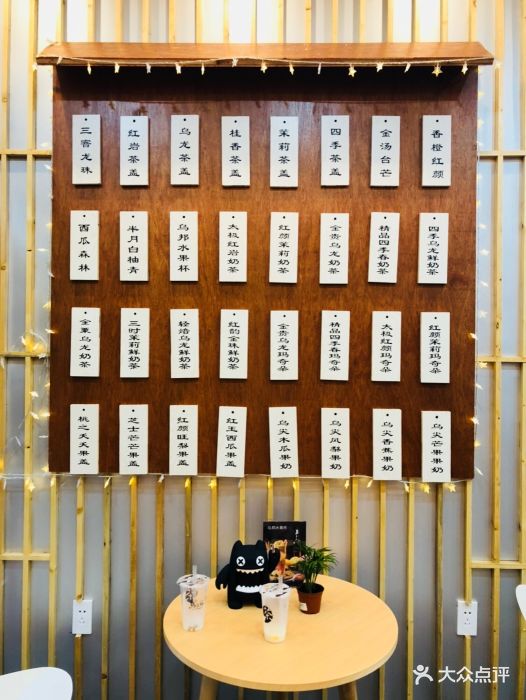 三窨龙珠
红岩茶盖
乌龙茶盖
桂香茶盖
茉莉茶盖
四季茶盖
金汤台芒
香橙红颜
西瓜森林
半月白柚青
乌邦水果杯
太极红岩奶茶
红颜茉莉奶茶
金贵乌龙奶茶
精品四季春奶茶
四季乌龙鲜奶茶
金熏乌龙奶茶
三时茉莉鲜奶茶
轻焙乌龙鲜奶茶
红韵金珠鲜奶茶
金贵乌龙玛奇朵
精品四季春玛奇朵
太极红颜玛奇朵
红颜茉莉玛奇朵
桃之夭夭果盖
芝士芒芒果盖
红颜旺梨果盖
红玉西瓜果盖
乌尖木瓜果奶
乌尖凤梨果奶
乌尖香蕉果奶
乌尖芒果果奶
大众点评